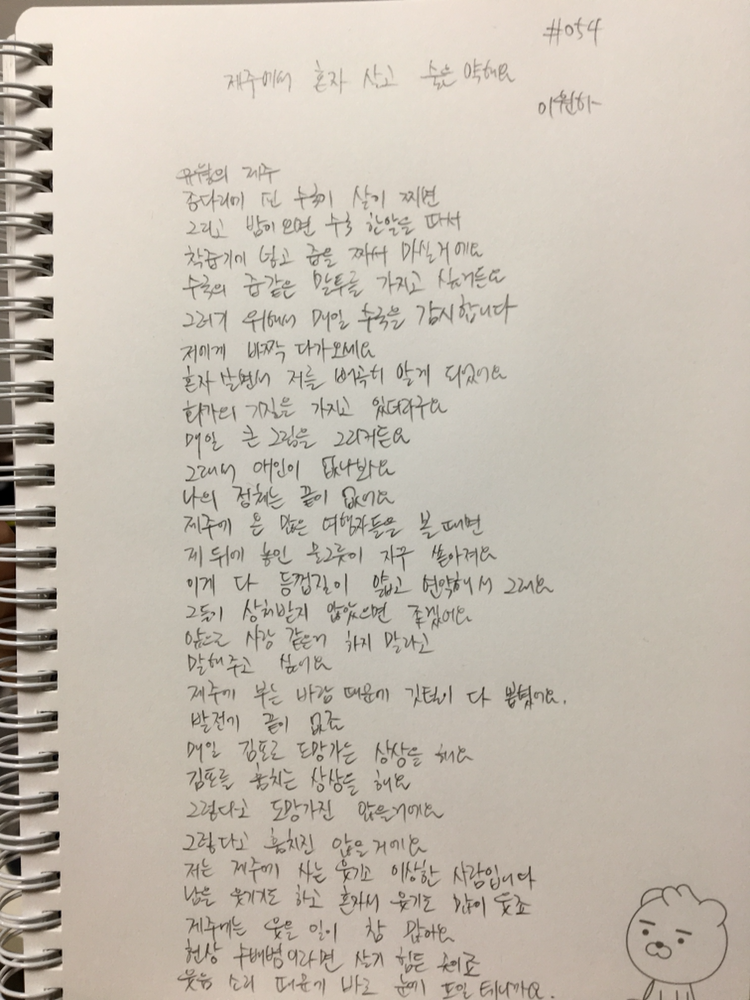 #054
제주에서 혼자 살고 술은 약해요
이원하
유월의 제주
종다리에 핀 수국이 살이 찌면
그리고 밤이 오면 수국 한알을 따서
착즙기에 넣고 즙을 짜서 마실거예요
수국의 즙같은 말투를 가지고 싶거든요
그러기 위해서 매일 수국을 감시합니다
저에게 바짝 다가오세요
혼자 살면서 저를 빼곡히 알게 되었어요
화가의 기질을 가지고 있더라구요
매일 큰 그림을 그리거든요
그래서 애인이 없나봐요
나의 정체는 끝이 없어요
제주에 온 많은 여행자들을 볼 때면
제 뒤에 놓인 물그릇이 자꾸 쏟아져요
이게 다 등껍질이 얇고 연약해서 그래요
그들이 상처받지 않았으면 좋겠어요
앞으로 사랑 같은거 하지 말라고
말해주고 싶어요
제주에 부는 바람 때문에 깃털이 다 뽑혔어요.
발전에 끝이 없죠
매일 김포로 도망가는 상상을 해요
김포를 훔치는 상상을 해요
그렇다고 도망가진 않을거예요
그렇다고 훔치진 않을거예요
저는 제주에 사는 웃기고 이상한 사람입니다
남을 웃기기도 하고 혼자서 웃기도 많이 웃죠
제주에는 웃을 일이 참 많아요
현상 수배범이라면 살기 힘든 곳이죠
웃음 소리 때문에 바로 눈에 뜨일 테니까요.